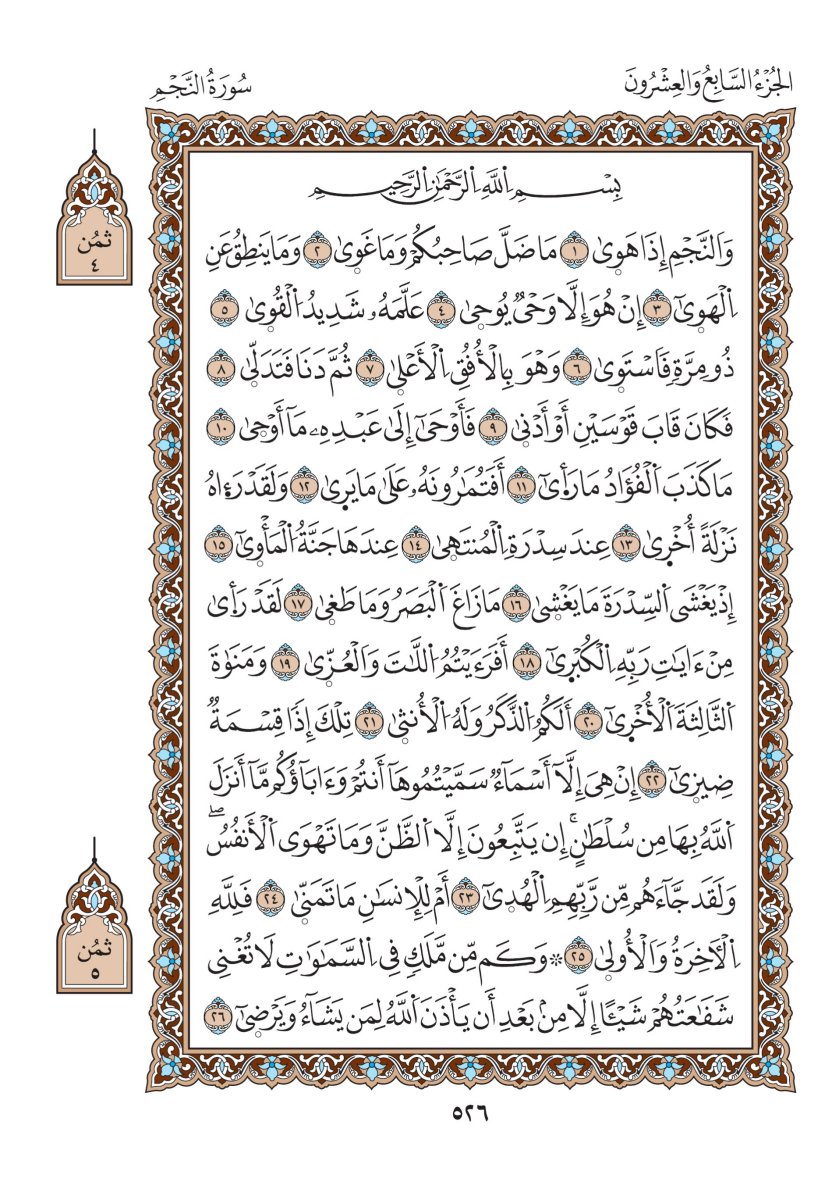 الجُزْءُ السَّابِعُ وَالعِشْرُونَ
سُورَةُ النَّجْمِ
بِسْمِ اِ۬للَّهِ اِ۬لرَّحْمَٰنِ اِ۬لرَّحِيمِ
وَالنَّجْمِ إِذَا هَوِىٰ ١ مَا ضَلَّ صَاحِبُكُمْ وَمَا غَوِىٰ ٢ وَمَا يَنطِقُ عَنِ
اِ۬لْهَوِىٰٓ ٣ إِنْ هُوَ إِلَّا وَحْيٌ يُوحِىٰ ٤ عَلَّمَهُۥ شَدِيدُ اُ۬لْقُوِىٰ ٥
ذُو مِرَّةٍ فَاسْتَوِىٰ ٦ وَهْوَ بِالْأُفُقِ اِ۬لْأَعْلِىٰ ٧ ثُمَّ دَنَا فَتَدَلِّىٰ ٨
فَكَانَ قَابَ قَوْسَيْنِ أَوْ أَدْنِىٰ ٩ فَأَوْحَىٰٓ إِلَىٰ عَبْدِهِۦ مَآ أَوْحِىٰ ١٠
مَا كَذَبَ اَ۬لْفُؤَادُ مَا رَأِىٰٓ ١١ أَفَتُمَٰرُونَهُۥ عَلَىٰ مَا يَرِىٰ ١٢ وَلَقَدْ رَءِاهُ
نَزْلَةً أُخْرِىٰ ١٣ عِندَ سِدْرَةِ اِ۬لْمُنتَهِىٰ ١٤ عِندَهَا جَنَّةُ اُ۬لْمَأْوِىٰٓ ١٥
إِذْ يَغْشَى اَ۬لسِّدْرَةَ مَا يَغْشِىٰ ١٦ مَا زَاغَ اَ۬لْبَصَرُ وَمَا طَغِىٰ ١٧ لَقَدْ رَأِىٰ
مِنْ ءَايَٰتِ رَبِّهِ اِ۬لْكُبْرِىٰٓ ١٨ أَفَرَءَيْتُمُ اُ۬للَّٰتَ وَالْعُزِّىٰ ١٩ وَمَنَوٰةَ
اَ۬لثَّالِثَةَ اَ۬لْأُخْرِىٰٓ ٢٠ أَلَكُمُ اُ۬لذَّكَرُ وَلَهُ اُ۬لْأُنثِىٰ ٢١ تِلْكَ إِذًا قِسْمَةٌ
ضِيزِىٰٓ ٢٢ إِنْ هِيَ إِلَّآ أَسْمَآءٌ سَمَّيْتُمُوهَآ أَنتُمْ وَءَابَآؤُكُم مَّآ أَنزَلَ
اَ۬للَّهُ بِهَا مِن سُلْطَٰنٍۚ إِن يَتَّبِعُونَ إِلَّا اَ۬لظَّنَّ وَمَا تَهْوَى اَ۬لْأَنفُسُۖ
وَلَقَد جَّآءَهُم مِّن رَّبِّهِمِ اِ۬لْهُدِىٰٓ ٢٣ أَمْ لِلْإِنسَٰنِ مَا تَمَنِّىٰ ٢٤ فَلِلَّهِ
اِ۬لْأٓخِرَةُ وَالْأُولِىٰ ٢٥ ۞ وَكَم مِّن مَّلَكٍ فِي اِ۬لسَّمَٰوَٰتِ لَا تُغْنِي
شَفَٰعَتُهُمْ شَيْـًٔا إِلَّا مِنۢ بَعْدِ أَن يَأْذَنَ اَ۬للَّهُ لِمَن يَشَآءُ وَيَرْضِىٰٓ ٢٦
ثُمُن
٤
ثُمُن
٥
٥٢٦